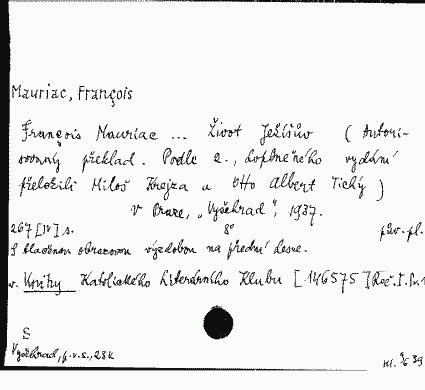 Mauriac, François
François Mauriac ... Život Ježíšův (Autori-
sovaný překlad. Podle 2., doplněného vydání
přeložili Miloš Krejza a Otto Albert Tichý)
v Praze, „Vyšehrad“, 1937.
267 [IV] s. 8° pův. pl.
S tlačenou obrazovou výzdobou na přední desce.
v. Knihy Katolického Literárního Klubu [146575] Roč. I. Sv. 1
S
Vyšehrad, p. v. s., 28 K